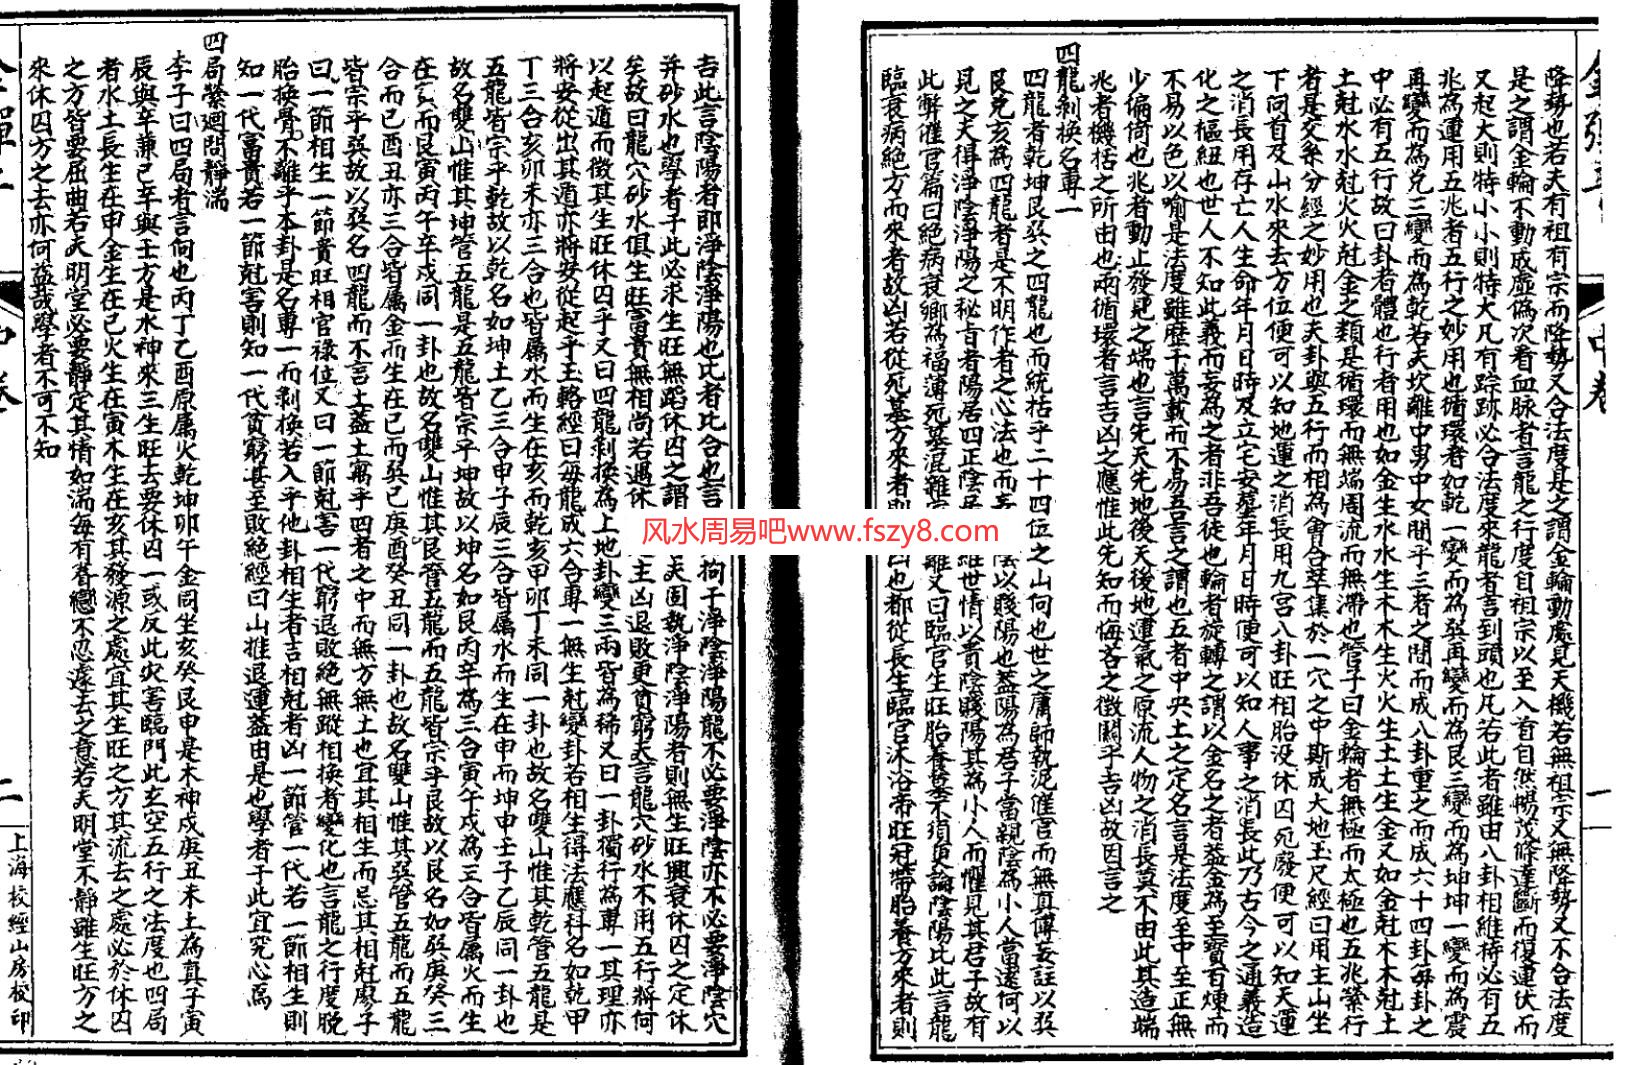 降勢也若夫有祖有宗而降勢又合法度是之謂金輪動處見天機若無祖宗又無降勢又不合法度
是之謂金輪不動成虛偽次看血脉者言龍之行度自祖宗以至入首自然暢茂條達斷而復連伏而
又起大則特小小則特大凡有踪跡必合法度來龍者言到頭也凡若此者雖由八卦相維持必有五
兆為運用五兆者五行之妙用也循環者如乾一變而為巽再變而為艮三變而為坤坤一變而為震
再變而為兌三變而為乾若夫坎離中男中女間乎三者之間而成八卦重之而成六十四卦每卦之
中必有五行故曰卦者體也行者用也如金生水水生木木生火火生土土生金又如金尅木木尅土
土尅水水尅火火尅金之類是循環而無端周流而無滯也管子曰金輪者無極而太極也五兆縈行
者是交泰分經之妙用也夫卦與五行而相為會合萃集於一穴之中斯成大地玉尺經曰用主山坐
下向首及山水來去方位便可以知地運之消長用九宮八卦旺相胎没休囚死廢便可以知天運
之消長用存亡人生命年月日時及立宅安墓年月日時便可以知人事之消長此乃古今之通義造
化之樞紐也世人不知此義而妄為之者非吾徒也輪者旋轉之謂以金名之者蓋金為至寶百煉而
不易以色以喻是法度雖歷千萬載而不易吾言之謂也五者中央土之定名言是法度至中至正無
少偏倚也兆者動止發見之端也言先天先地後天後地運氣之原流人物之消長莫不由此其造端
兆者機括之所由也兩循環者言吉凶之應惟此先知而悔吝之徵關乎吉凶故因言之
四龍剥換名專一
四龍者乾坤艮巽之四龍也而統括乎二十四位之山何也世之庸師執泥催官而無真傳妄註以巽
艮兌亥為四龍者是不明作者之心法也而
陰以賤陽也蓋陽為君子當親陰為小人當遠何以
見之夫得淨陰淨陽之秘旨者陽居四正陰居
維世情以貴陰賤陽其為小人而懼見其君子故有
此弊催官篇曰絕病衰鄉為福薄死墓混雜
離又曰臨官生旺胎養墓不須更論陰陽比此言龍
臨衰病絕方而來者故凶若從死墓方來者則
凶也都從長生臨官沐浴帝旺冠帶胎養方來者則
吉此言陰陽者即淨陰淨陽也比者比合也言
拘于淨陰淨陽龍不必要淨陰亦不必要淨陰穴
并砂水也學者于此必求生旺無蹈休囚之謂
夫固執淨陰淨陽者則無生旺興衰休囚之定休
矣故曰龍穴砂水俱生旺富貴無相尚若遇休
主凶退敗更貧窮夫言龍穴砂水不用五行將何
以起遁而徵其生旺休囚乎又曰四龍剥換為上地卦變三兩皆為稀又曰一卦獨行為專一其理亦
將安從出其遁亦將安從起乎玉輅經曰每龍成六合專一無生尅變卦若相生得法應科名如乾甲
丁三合亥卯未亦三合也皆屬水而生在亥而乾亥甲卯丁未同一卦也故名雙山惟其乾管五龍是
五龍皆宗乎乾故以乾名如坤土乙三合申子辰三合皆屬水而生在申而坤申壬子乙辰同一卦也
故名雙山惟其坤管五龍是五龍皆宗乎坤故以坤名如艮丙辛為三合寅午戌為三合皆屬火而生
在寅而艮寅丙午辛戌同一卦也故名雙山惟其艮管五龍而五龍皆宗乎艮故以艮名如巽庚癸三
合而巳酉丑亦三合皆屬金而生在巳而巽巳庚酉癸丑同一卦也故名雙山惟其巽管五龍而五龍
皆宗乎巽故以巽名四龍而不言土蓋土寓乎四者之中而無方無土也宜其相生而忌其相尅廖子
曰一節相生一節貴旺相官祿位又曰一節尅害一代窮退敗絕無蹤相換者變化也言龍之行度脫
胎換骨不離乎本卦是名專一而剥換若入乎他卦相生者吉相尅者凶一節管一代若一節相生則
知一代富貴若一節尅害則知一代貧窮甚至敗絕經曰山推退運蓋由是也學者于此宜究心焉
四局縈迴問靜湍
李子曰四局者言向也丙丁乙酉原属火乾坤卯午金同坐亥癸艮申是木神戌庚丑未土為真子寅
辰與辛兼己辛與壬方是水神來三生旺去要休囚一或反此灾害臨門此玄空五行之法度也四局
者水土長生在申金生在巳火生在寅木生在亥其發源之處宜其生旺之方其流去之處必於休囚
之方皆要屈曲若夫明堂必要靜定其情如湍每有眷戀不忍遠去之意若夫明堂不靜雖生旺方之
來休囚方之去亦何益哉學者不可不知
中卷
一
二
上海校經山房校印
风水周易吧www.fszy8.com